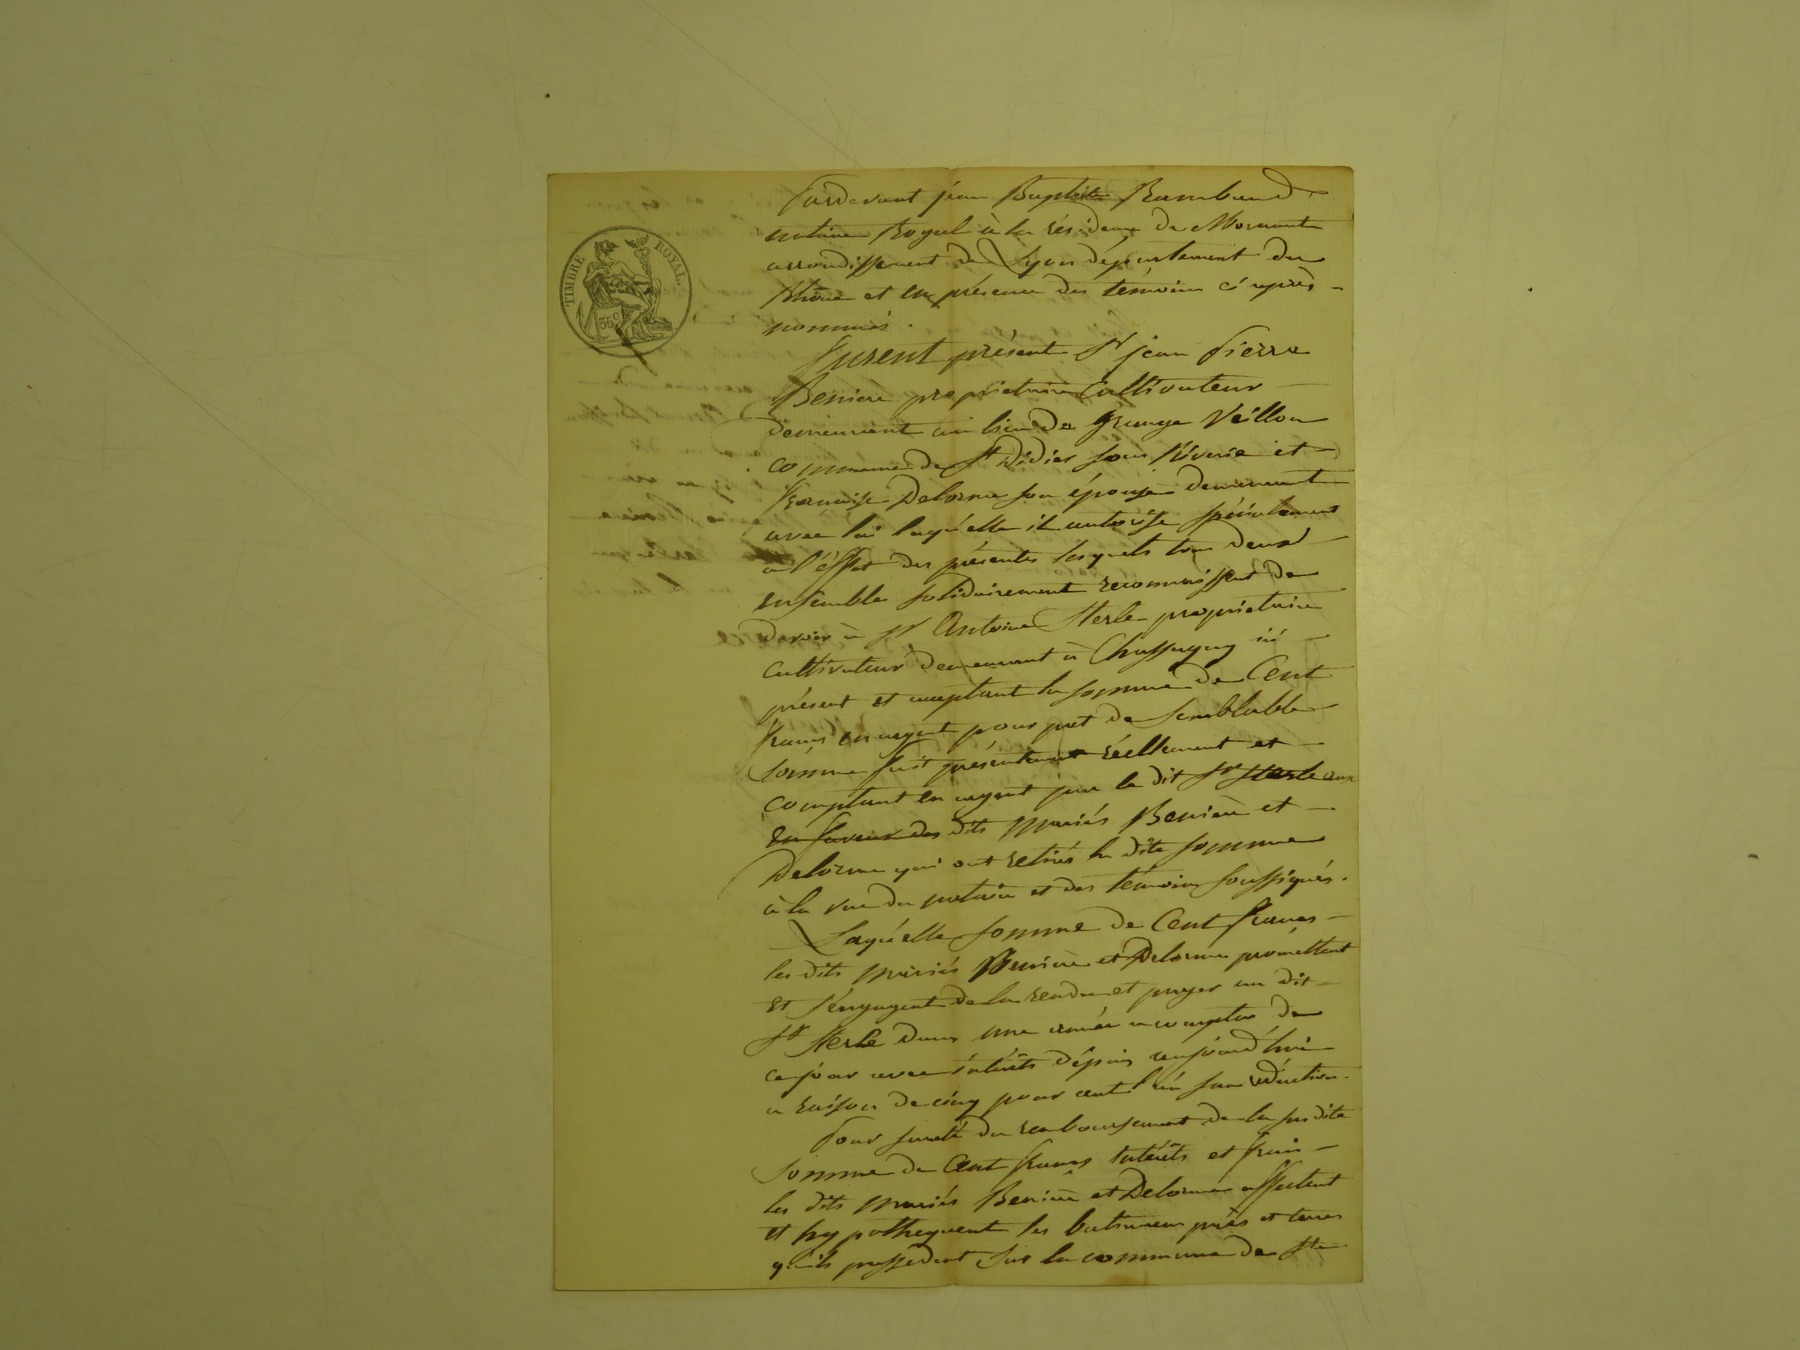 TIMBRE ROYAL
35c
Pardevant jean Baptiste Rambaud
notaire Royal à la résidence de Mornant
arrondissement de Lyon département du
Rhône et en présence des témoins ci après
nommés.
furent présent Sr jean Pierre
Beniere propriétaire Cultivateur
demeurant au lieu de Grange Veillon
commune de St Didier sous Riverie et
françoise Delorme son épouse demeurant
avec lui laqu'elle il autorise spécialement
a l'éffet des présentes lesquels tous deux
ensemble solidairement reconnaissent de
devoir à Sr Antoine Sterle propriétaire
cultivateur demeurant à Chassagny ici
présent et acceptant la somme de Cent
francs en argent pour pret de semblable
somme fait présentement réellement et
comptant en argent par le dit Sr Sterle aux
en faveur des dits mariés Beniere et
Delorme qui ont retirés la dite somme
à la vue du notaire et des témoins soussignés.
Laqu'elle somme de Cent francs
les dits mariés Beniere et Delorme promettent
et s'engagent de la rendre et payer au dit
Sr Sterle dans une année a compter de
ce jour avec intérêts dépuis aujourd'hui
a raison de cinq pour cent l'an sans réduction.
Pour sureté du remboursement de la susdite
somme de Cent francs intérêts et frais
les dits mariés Beniere et Delorme affectent
et hypothequent les batiments prés et terres
qu'ils possedent sur la commune de St